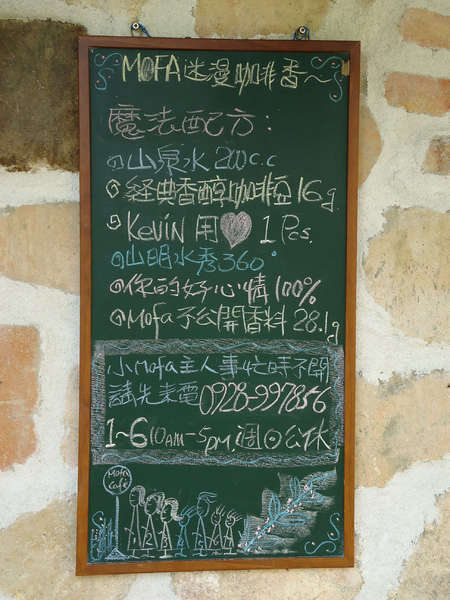 MOFA迷漫咖啡香~
魔法配方:
山泉水 200c.c
經典香醇咖啡豆16g
Kevin 用♥ 1Pcs.
山明水秀360°
你的好心情100%
Mofa不公開香料 28.1g
小Mofa主人事忙時不開
請先來電0928-997856
1~6 10AM-5PM.週日公休
Mofa
Café